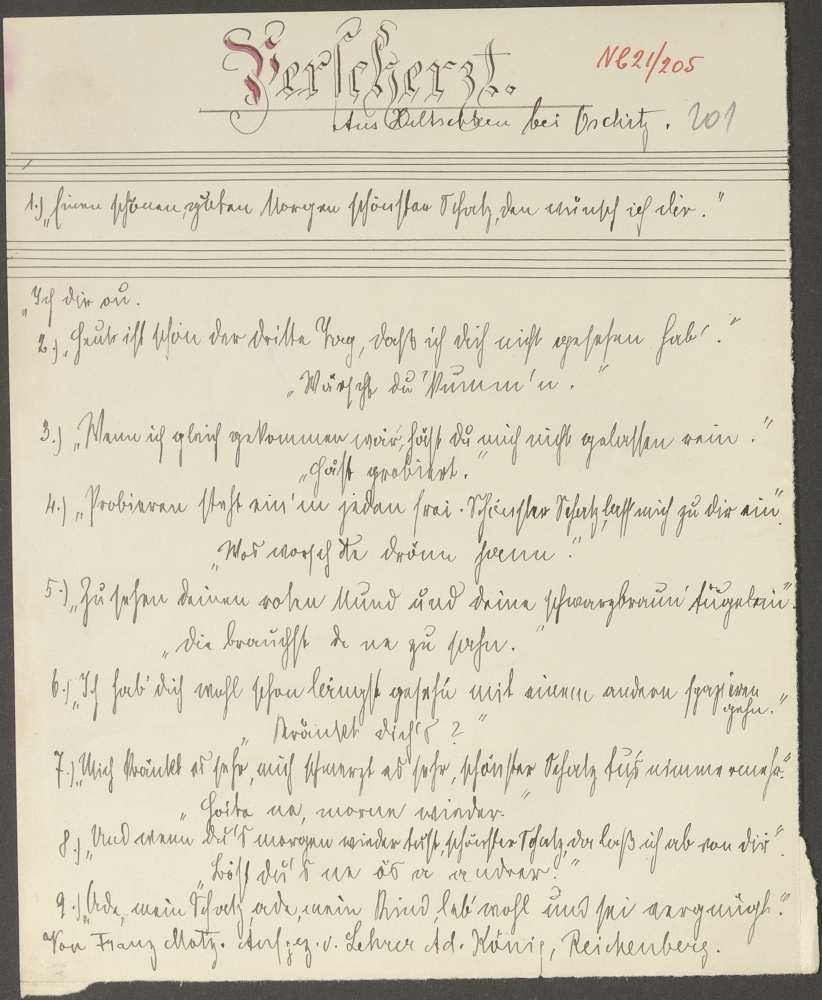 Verscherzt.
Nl 21/205
Aus bei Oschitz. 201
1.) „Einen schönen, guten Morgen schönster Schatz, den wünsch ich dir.“
„Ich dir ou.
2.) „Heut ist schon der dritte Tag, daß ich dich nicht gesehen hab'.“
„Wärscht du kumm'n.“
3.) „Wenn ich gleich gekommen wär', häst du mich nicht gelassen rein.“
„Häst probiert.“
4.) „Probieren steht ein'm jeden frei. Schönster Schatz, lass mich zu dir ein“
„Wos worsch de dronn honn.“
5.) „Zu sehen deinen roten Mund und deine schwarzbraun' Äugelein“.
„Die brauchst de ne zu sahn.“
6.) „Ich hab' dich wohl schon längst gesehn mit einem andern spazieren
gehn.“
„Kränket dich's?“
7.) „Mich kränkt es sehr, mich schmerzt es sehr, schönster Schatz tu's nimmermehr.“
„Hoite ne, morne wieder.“
8.) „Und wenn du's morgen wieder tust, schönster Schatz, da laß ich ab von dir“.
„Böst du's ne ös a andrer.“
9.) „Ade, mein Schatz ade, mein Kind, leb' wohl und sei vergnügt.“
Von Franz Motz. Aufgez. v. Lehrer Ad. König, Reichenberg.